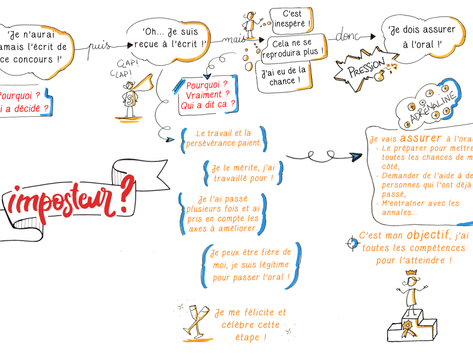 'Je n'aurai
jamais l'écrit de
ce concours !'
puis
'Oh... Je suis
reçue à l'écrit !'
CLAP!
CLAP!
mais
C'est
inespéré !
Cela ne se
reproduira plus !
J'ai eu de la
chance !
donc
'Je dois assurer
à l'oral !'
PRESSION
ADRENALINE
Pourquoi ?
i a décidé ?
Pourquoi ?
Vraiment ?
Qui a dit ca ?
Le travail et la
persévérance paient
Je le mérite, j'ai
travaillé pour !
Je l'ai passé
plusieurs fois et ai
pris en compte les
axes à améliorer
Je peux être fière
de moi, je suis légitime
pour passer l'oral !
Je me félicite et
célèbre cette
étape !
imposteur ?
Je vais assurer à l'ora
- Le préparer pour mettre
toutes les chances de m
côté,
- Demander de l'aide à de
personnes qui l'ont déjà
passé,
- M'entraîner avec les
annales...
C'est mon objectif, j'ai
toutes les compétences
pour l'atteindre !